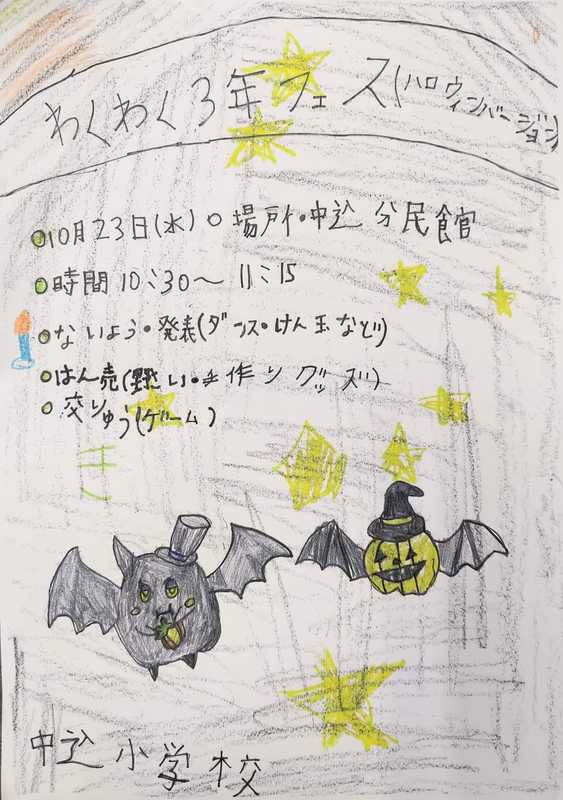 わくわく3年フェス(ハロウィンバージョン)
10月23日(水) 場所・中込 分民食官
時間 10:30〜 11:15
ないよう・発表(ダンス・けん玉など)
はん売(野さい・手作りグッズ)
交りゅう(ゲーム)
中込小学校